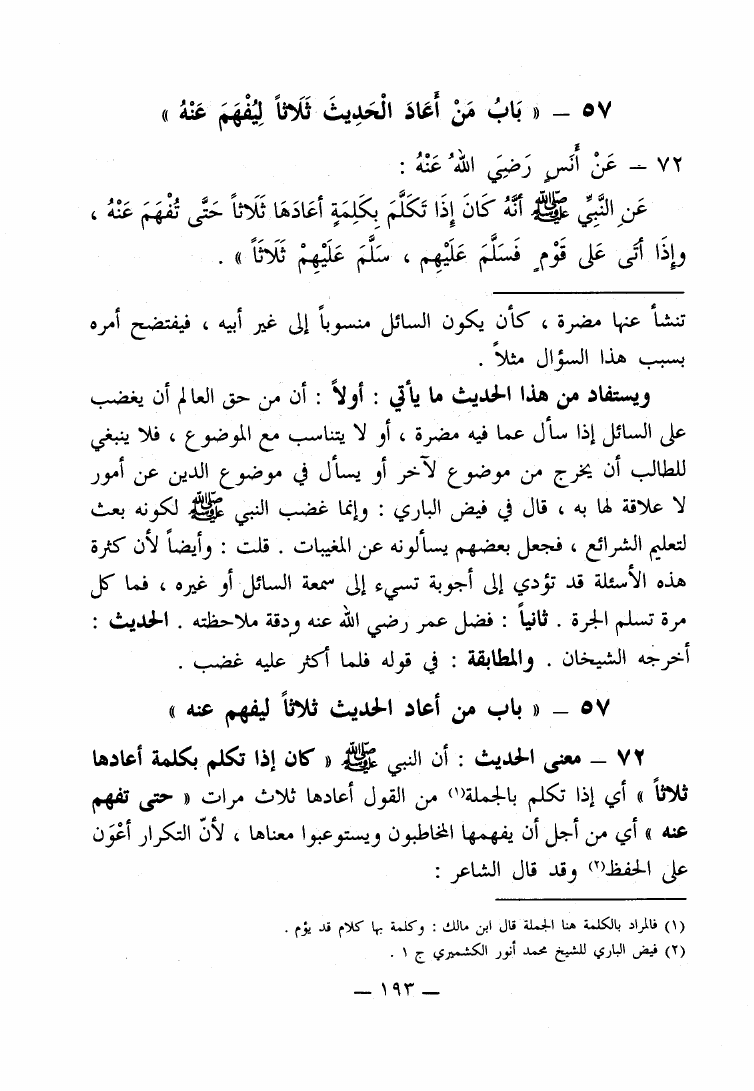 ٥٧ – « بَابُ مَنْ أَعَادَ الْحَدِيثَ ثَلَاثاً لِيُفْهَمَ عَنْهُ »
٧٢ – عَنْ أَنَسٍ رَضِيَ اللهُ عَنْهُ :
عَنِ النَّبِيِّ ﷺ أَنَّهُ كَانَ إِذَا تَكَلَّمَ بِكَلِمَةٍ أعَادَهَا ثَلَاثاً حَتَّى تُفْهَمَ عَنْهُ ،
وإِذَا أَتَى عَلى قَوْمٍ فَسَلَّمَ عَلَيْهِم ، سَلَّمَ عَلَيْهِمْ ثَلَاثَاً » .
تنشأ عنها مضرة ، كأن يكون السائل منسوباً إلى غير أبيه ، فيفتضح أمره
بسبب هذا السؤال مثلاً .
ويستفاد من هذا الحديث ما يأتي : أولاً : أن من حق العالم أن يغضب
على السائل إذا سأل عما فيه مضرة ، أو لا يتناسب مع الموضوع ، فلا ينبغي
للطالب أن يخرج من موضوع لآخر أو يسأل في موضوع الدين عن أمور
لا علاقة لها به ، قال في فيض الباري : وإنما غضب النبي ﷺ لكونه بعث
لتعليم الشرائع ، فجعل بعضهم يسألونه عن المغيبات . قلت : وأيضاً لأن كثرة
هذه الأسئلة قد تؤدي إلى أجوبة تسيء إلى سمعة السائل أو غيره ، فما كل
مرة تسلم الجرة . ثانياً : فضل عمر رضي الله عنه ودقة ملاحظته . الحديث :
أخرجه الشيخان . والمطابقة : في قوله فلما أكثر عليه غضب .
٥٧ – « باب من أعاد الحديث ثلاثاً ليفهم عنه »
٧٢ – معنى الحديث : أن النبي ﷺ « كان إذا تكلم بكلمة أعادها
ثلاثاً » أي إذا تكلم بالجملة(١) من القول أعادها ثلاث مرات « حتى تفهم
عنه » أي من أجل أن يفهمها المخاطبون ويستوعبوا معناها ، لأنّ التكرار أعْوَن
على الحفظ(٢) وقد قال الشاعر :
(١) فالمراد بالكلمة هنا الجملة قال ابن مالك : وكلمة بها كلام قد يؤم .
(٢) فيض الباري للشيخ محمد أنور الكشميري ج ١ .
– ١٩٣ –